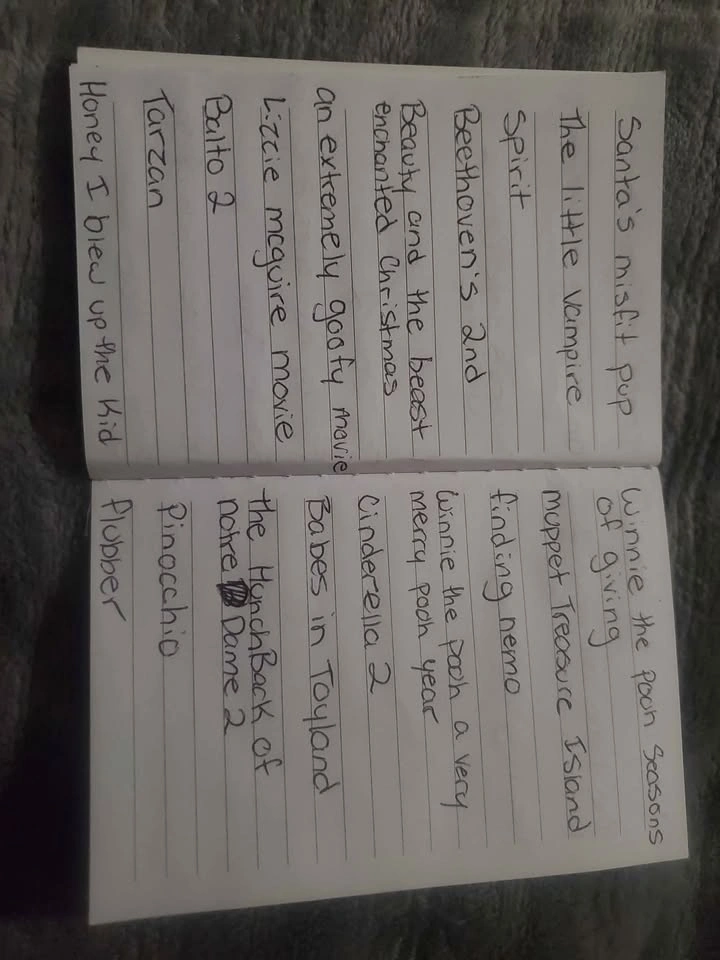 Santa's misfit pup
The little vampire
Spirit
Beethoven's 2nd
Beauty and the beast
enchanted Christmas
an extremely goofy movie
Lizzie mcguire movie
Balto 2
Tarzan
Honey I blew up the Kid
Winnie the pooh seasons
of giving
muppet Treasure Island
finding nemo
Winnie the pooh a very
merry pooh year
Cinderella 2
Babes in Toyland
the HunchBack of
notre Dame 2
Pinocchio
flubber